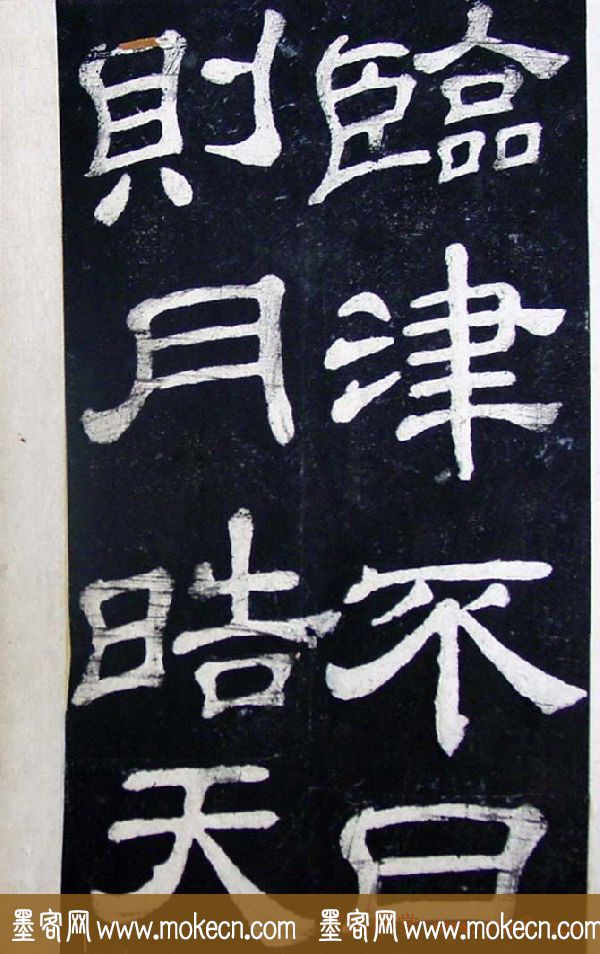 臨津不日
則月晧天
墨客网 www.mokecn.com 墨客网 www.mokecn.com